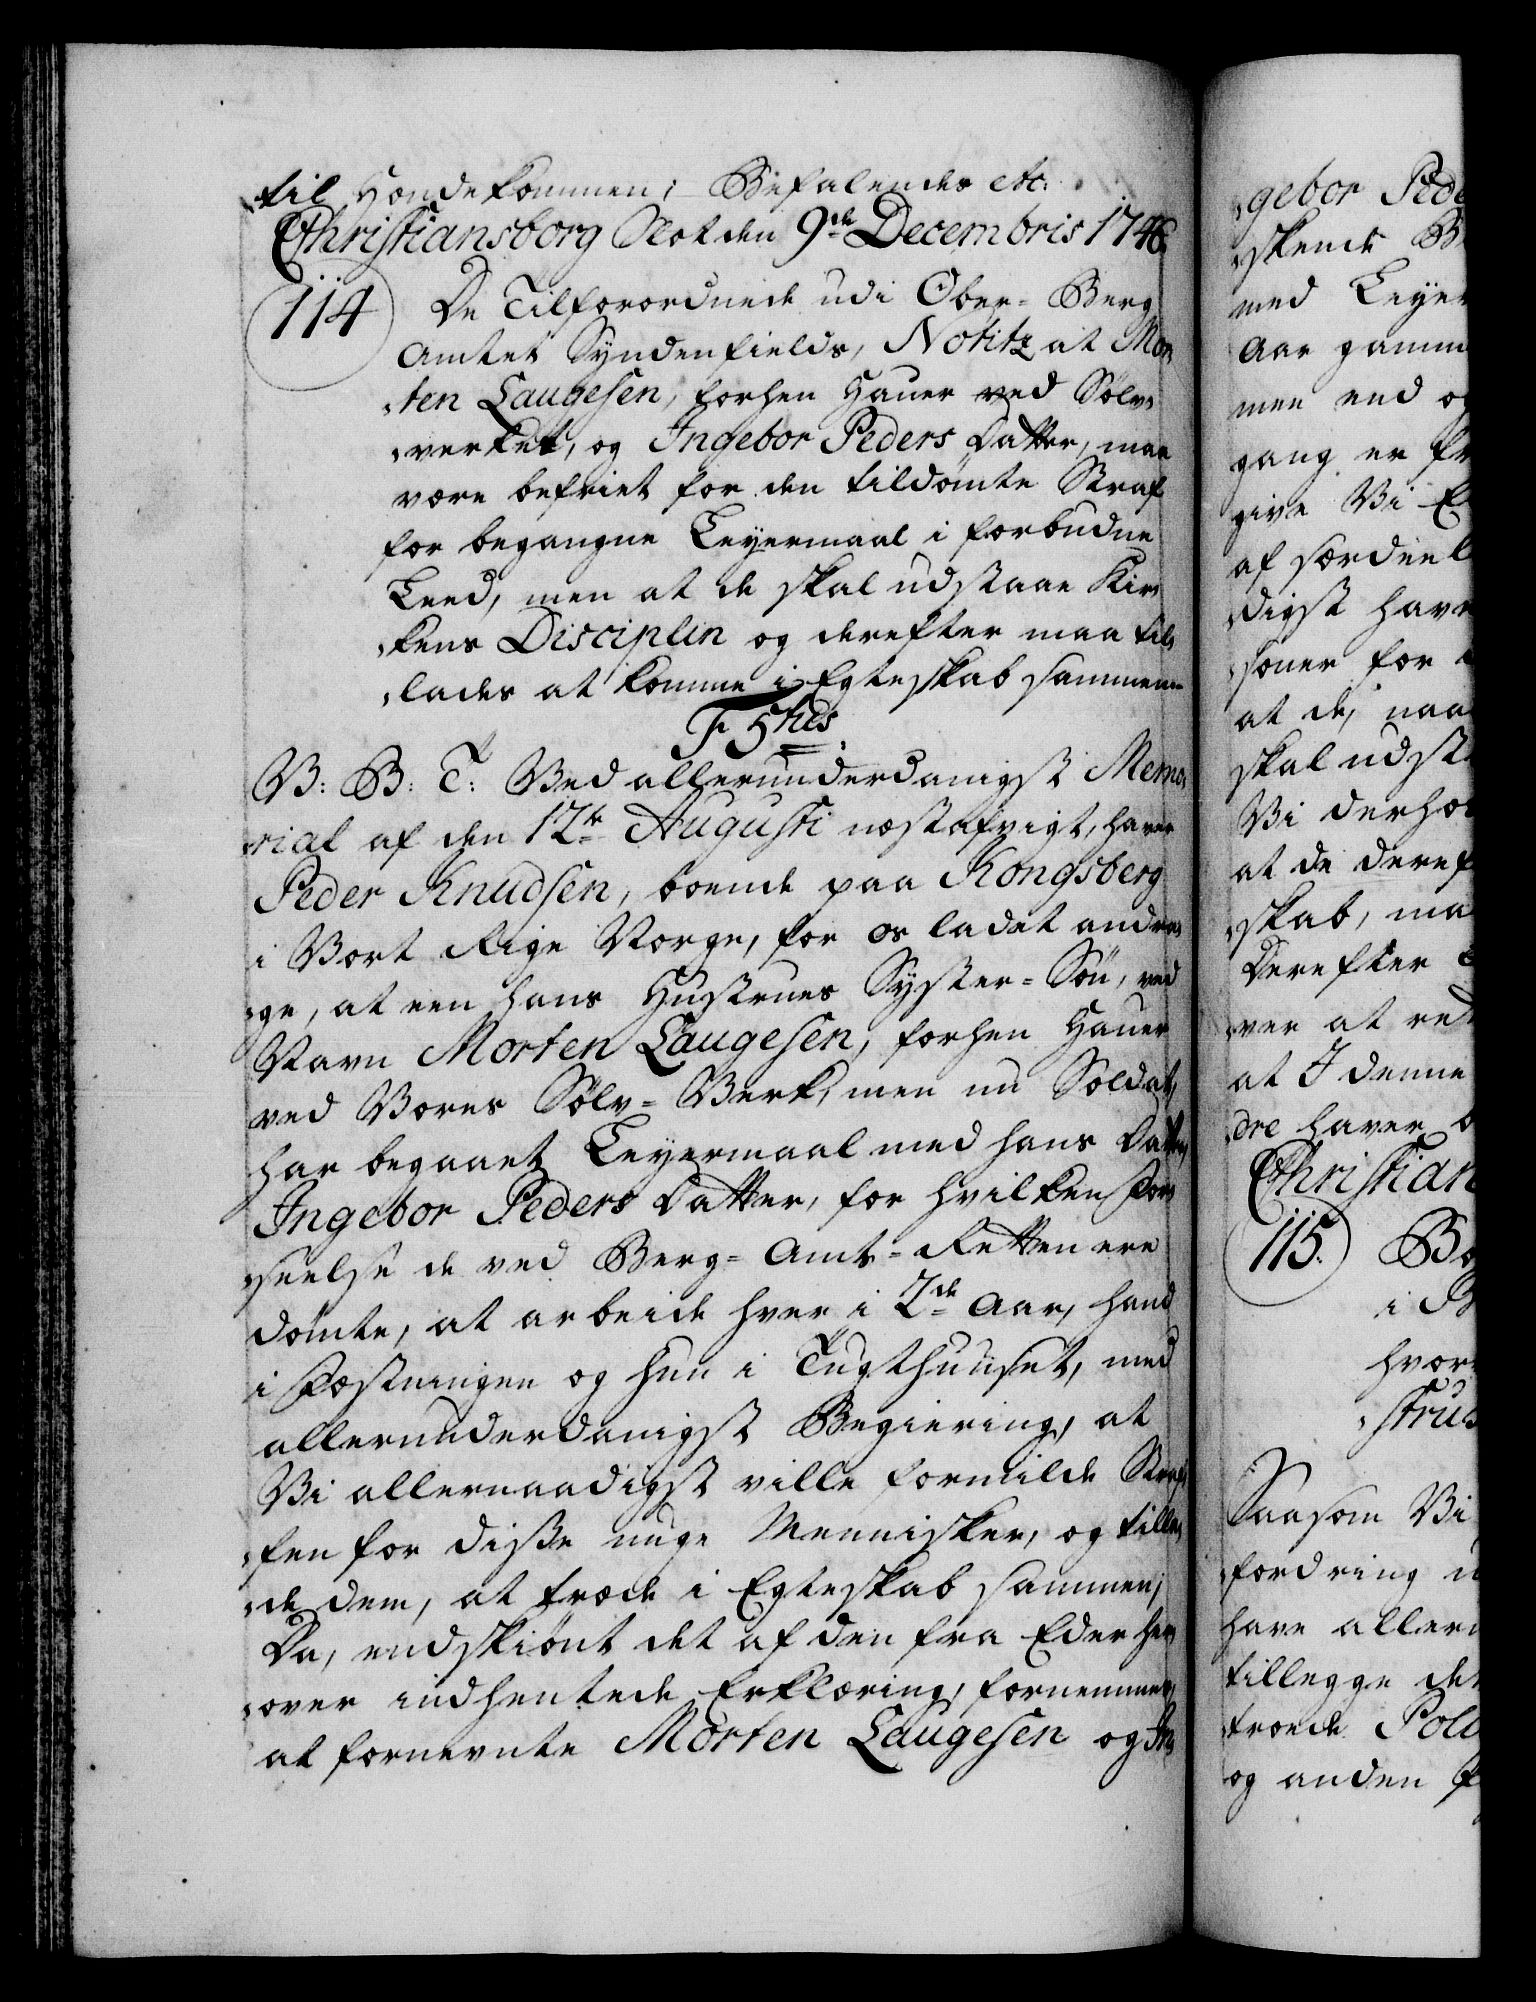 til Hænde kommen; Befalendes etc:
Christiansborg Slot den 9de Decembris 1746
114
De Tilforordnede udi Ober-Berg
Amtet Syndenfields, Notitz at Mor
ten Laugesen, forhen Hauer ved Sølv
verket, og Ingebor Peders Datter, maa
være befriet for den tildømte Straf
for begangne Leyermaal i forbudne
Leed, men at de skal udstaae Kir
kens Disciplin og derefter maa til
lades at komme i Egteskab sammen
V: B: T: Ved allerunderdanigst Memo
rial af den 12te Augusti næstafvigt, haver
Peder Knudsen, boende paa Kongsberg
i Vort Rige Norge, for os ladet andra
ge, at een hans Hustrues Syster-Søn, ved
Navn Morten Laugesen, forhen Hauer
ved Vores Sølv-Verk, men nu Soldat,
har begaaet Leyermaal med hans Datter
Ingebor Peders Datter, for hvilken For
seelse de ved Berg-Amts-Retten ere
dømte, at arbeide hver i 2de Aar, hand
i Fæstningen og hun i Tugthuuset, med
allerunderdanigst Begiering, at
Vi allernaadigst ville formilde Straf
fen for disse unge Mennisker, og tilla
de dem, at træde i Egteskab sammen;
Da, endskiønt det af den fra Eder her
over indhentede Erklæring, fornemmes,
at fornevnte Morten Laugesen og In
gebor Pede
skende B
med Leyer
Aar gamm
men end o
gang er
give Vi
af særdeel
digst have
soner for
at de, naa
skal udst
Vi derho
at de deref
skab, ma
Derefter
ver at
at I denne
dre haver
Christian
115.
i
hvor
Saasom Vi
fordring
have allern
tillegge
træde Pol
og anden